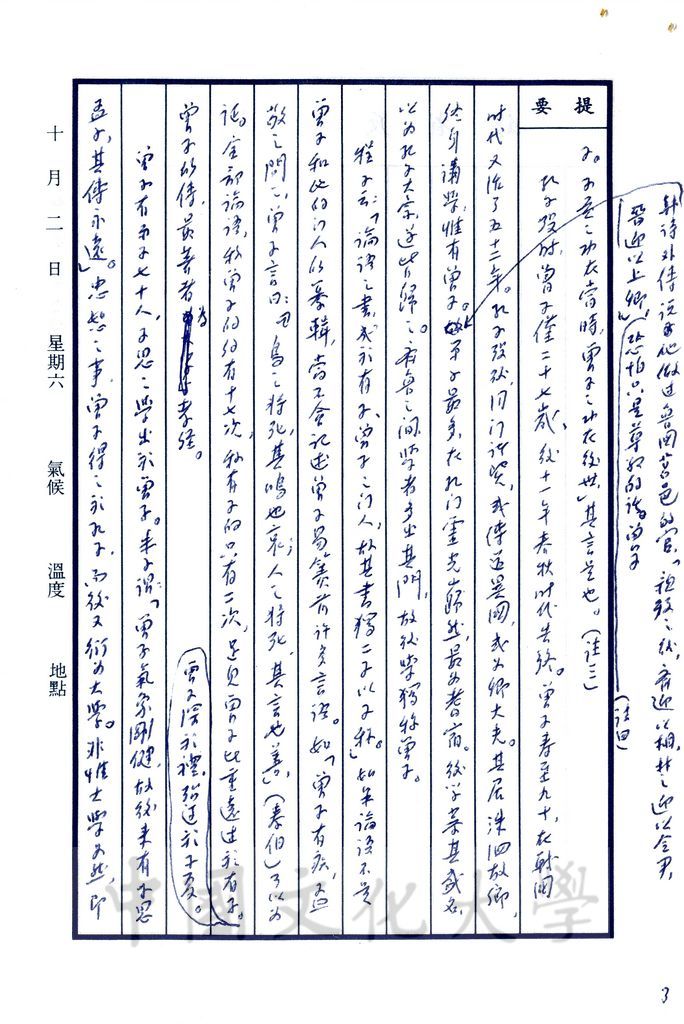 韓詩外傳說他做過魯國莒邑的官。「親歿之後,齊迎以相,楚迎以令尹,
晉迎以上卿,」恐怕只是尊敬的諸曾子
(註四)
提要
子。子貢之功在當時,曾子之功在後世」其言是也。(註三)
孔子歿時,曾子僅二十七歲,後十一年春秋時代告終。曾子壽至九十,在戰國
時代又活了五十二年。孔子歿後,同門諸賢,或傳道異國,或為卿大夫。其居洙泗故鄉,
終身講學,惟有曾子。故弟子最多,在孔門靈光巋然,最為耆宿。後學慕其盛名,
以為孔子大宗,遂皆歸之。齊魯之間,學者多出其門,故後學獨稱曾子。
程子云:「論語之書,成於有子、曾子之門人,故其書獨二子以子稱。」如果論語不是
曾子和他的門人的纂輯,當不會記述曾子易簀前許多言語。如「曾子有疾,孟
敬子問之,曾子言曰:鳥之將死,其鳴也哀;人之將死,其言也善」(泰伯)可以為
證。全部論語,稱曾子的約有十七次,稱有子的只有三次,足見曾子比重遠過於有子。
曾子深於禮,殆過於子夏。
曾子的傳,最著者為孝經。
曾子有弟子七十人,子思之學出於曾子。朱子謂:「曾子氣象剛健,故後來有子思
孟子,其傳永遠。」忠恕之事,曾子得之於孔子,而後又衍為大學。非惟大學為然,即
十月二日 星期六 氣候 溫度 地點
中國文化大學
3